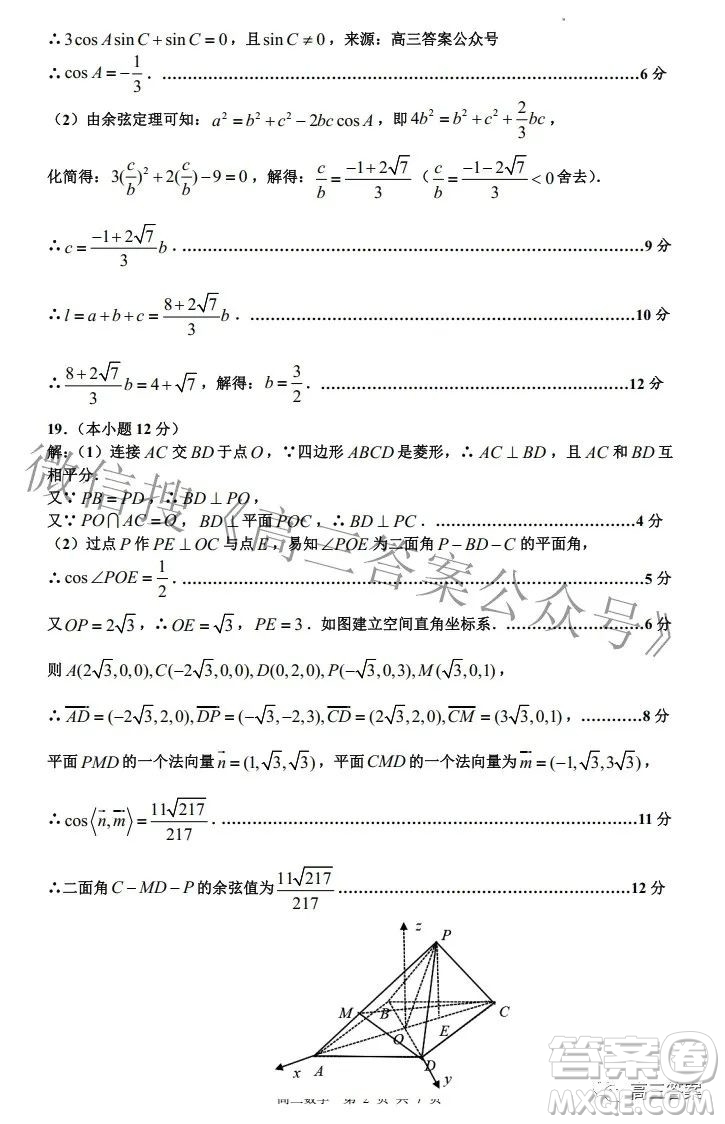 ∴3cos A sin C + sin C = 0，且 sin C ≠ 0，来源：高三答案公众号
∴cos A = −1/3．……………………………………………………6 分
（2）由余弦定理可知：a² = b² + c² − 2bc cos A，即 4b² = b² + c² + 2/3 bc，
化简得：3(c/b)² + 2(c/b) − 9 = 0，解得：c/b = (−1+2√7)/3（c/b = (−1−2√7)/3 < 0 舍去）．
∴c = (−1+2√7)/3 b．……………………………………………………9 分
∴l = a + b + c = (8+2√7)/3 b．……………………………………………………10 分
∴(8+2√7)/3 b = 4+√7，解得：b = 3/2．……………………………………………………12 分
19.（本小题 12 分）
解：（1）连接 AC 交 BD 于点 O，∵四边形 ABCD 是菱形，∴AC ⊥ BD，且 AC 和 BD 互
相平分．
又∵ PB = PD，∴BD ⊥ PO，
又∵ PO∩AC = O，BD⊥平面 POC，∴BD ⊥ PC．……………………………4 分
（2）过点 P 作 PE ⊥ OC 与点 E，易知∠POE 为二面角 P−BD−C 的平面角，
∴cos∠POE = 1/2．……………………………………………………5 分
又 OP = 2√3，∴OE = √3，PE = 3．如图建立空间直角坐标系．……………………6 分
则 A(2√3,0,0), C(−2√3,0,0), D(0,2,0), P(−√3,0,3), M(√3,0,1)，
∴AD = (−2√3,2,0), DP = (−√3,−2,3), CD = (2√3,2,0), CM = (3√3,0,1)，…………8 分
平面 PMD 的一个法向量 n = (1,√3,√3)，平面 CMD 的一个法向量为 m = (−1,√3,3√3)，
∴cos⟨n,m⟩ = 11√217/217．……………………………………………………11 分
∴二面角 C−MD−P 的余弦值为 11√217/217……………………………………12 分
z
P
M
B
C
O
E
x
A
D
y
高三数学 第 2 页 共 7 页
微信搜《高三答案公众号》
答案圈
高三答案